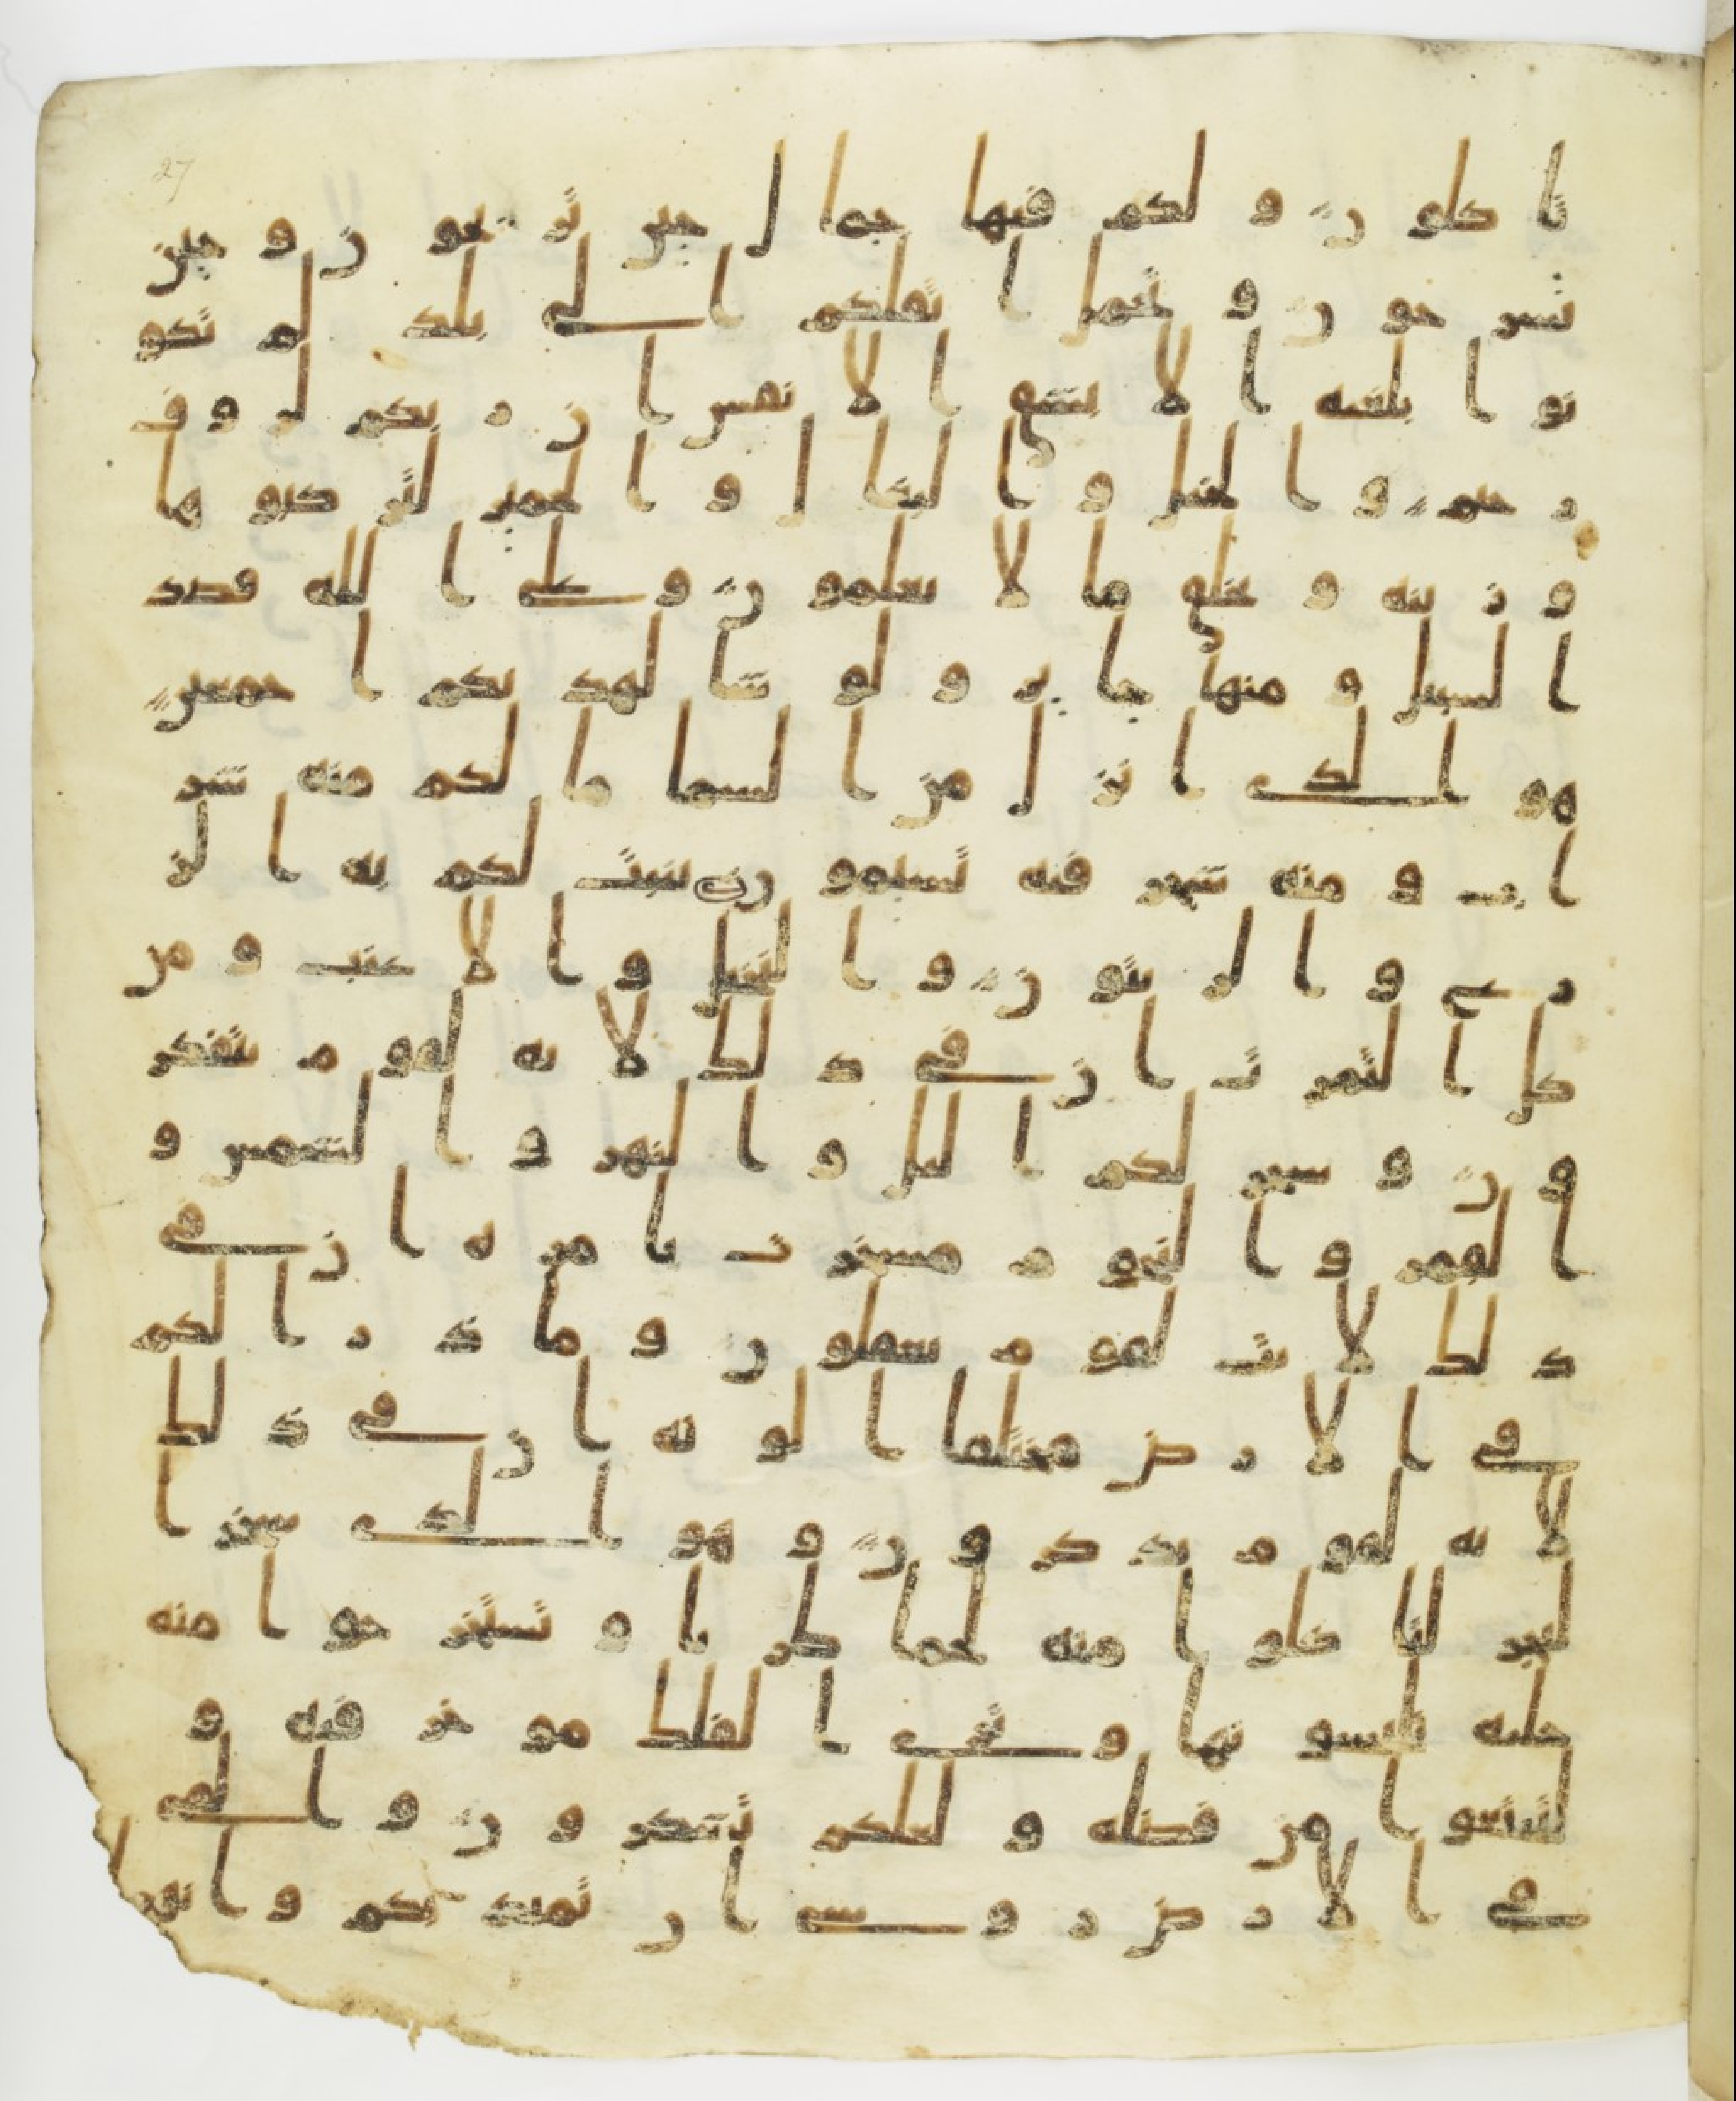 تاكلون ولكم فيها جمال حين تريحون وحين
تسرحون وتحمل اثقلكم الى بلد لم تكو
نوا بلغيه الا بشق الانفس ان ربكم لروف
رحيم والخيل والبغال والحمير لتركبوها
وزينه ويخلق ما لا تعلمون وعلى الله قصد
السبيل ومنها جاير ولو شا لهديكم اجمعين
هو الذى انزل من السما ما لكم منه شر
اب ومنه شجر فيه تسيمون ينبت لكم به الز
رع والزيتون والنخيل والاعنب ومن
كل الثمرت ان فى ذلك لايه لقوم يتفكر
ون وسخر لكم اليل والنهر والشمس و
القمر والنجوم مسخرت بامره ان فى
ذلك لايت لقوم يعقلون وما ذرا لكم
فى الارض مختلفا الونه ان فى ذلك
لايه لقوم يذكرون وهو الذى سخر ا
لبحر لتاكلوا منه لحما طريا وتستخرجوا منه
حليه تلبسونها وترى الفلك موخر فيه و
لتبتغوا من فضله ولعلكم تشكرون والقى
فى الارض روسى ان تميد بكم وانهر